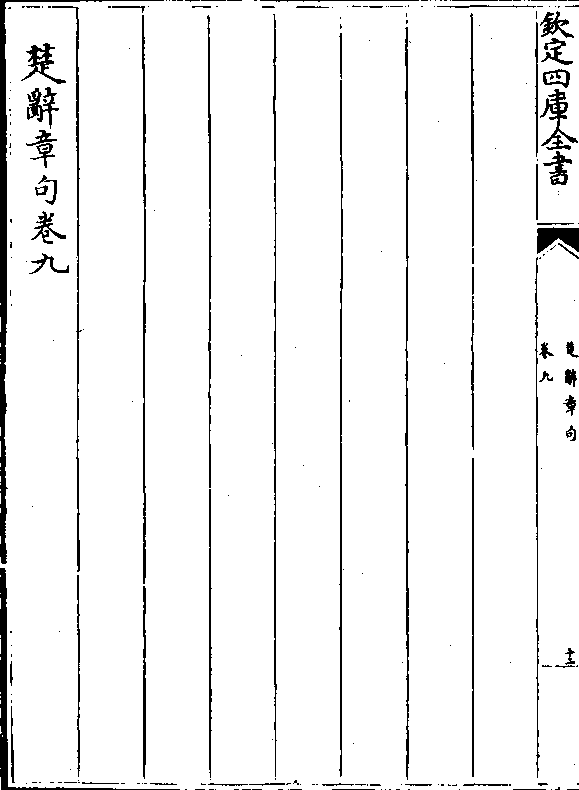 欽定四庫全書
楚辭章句
卷九
十三
楚辭章句卷九